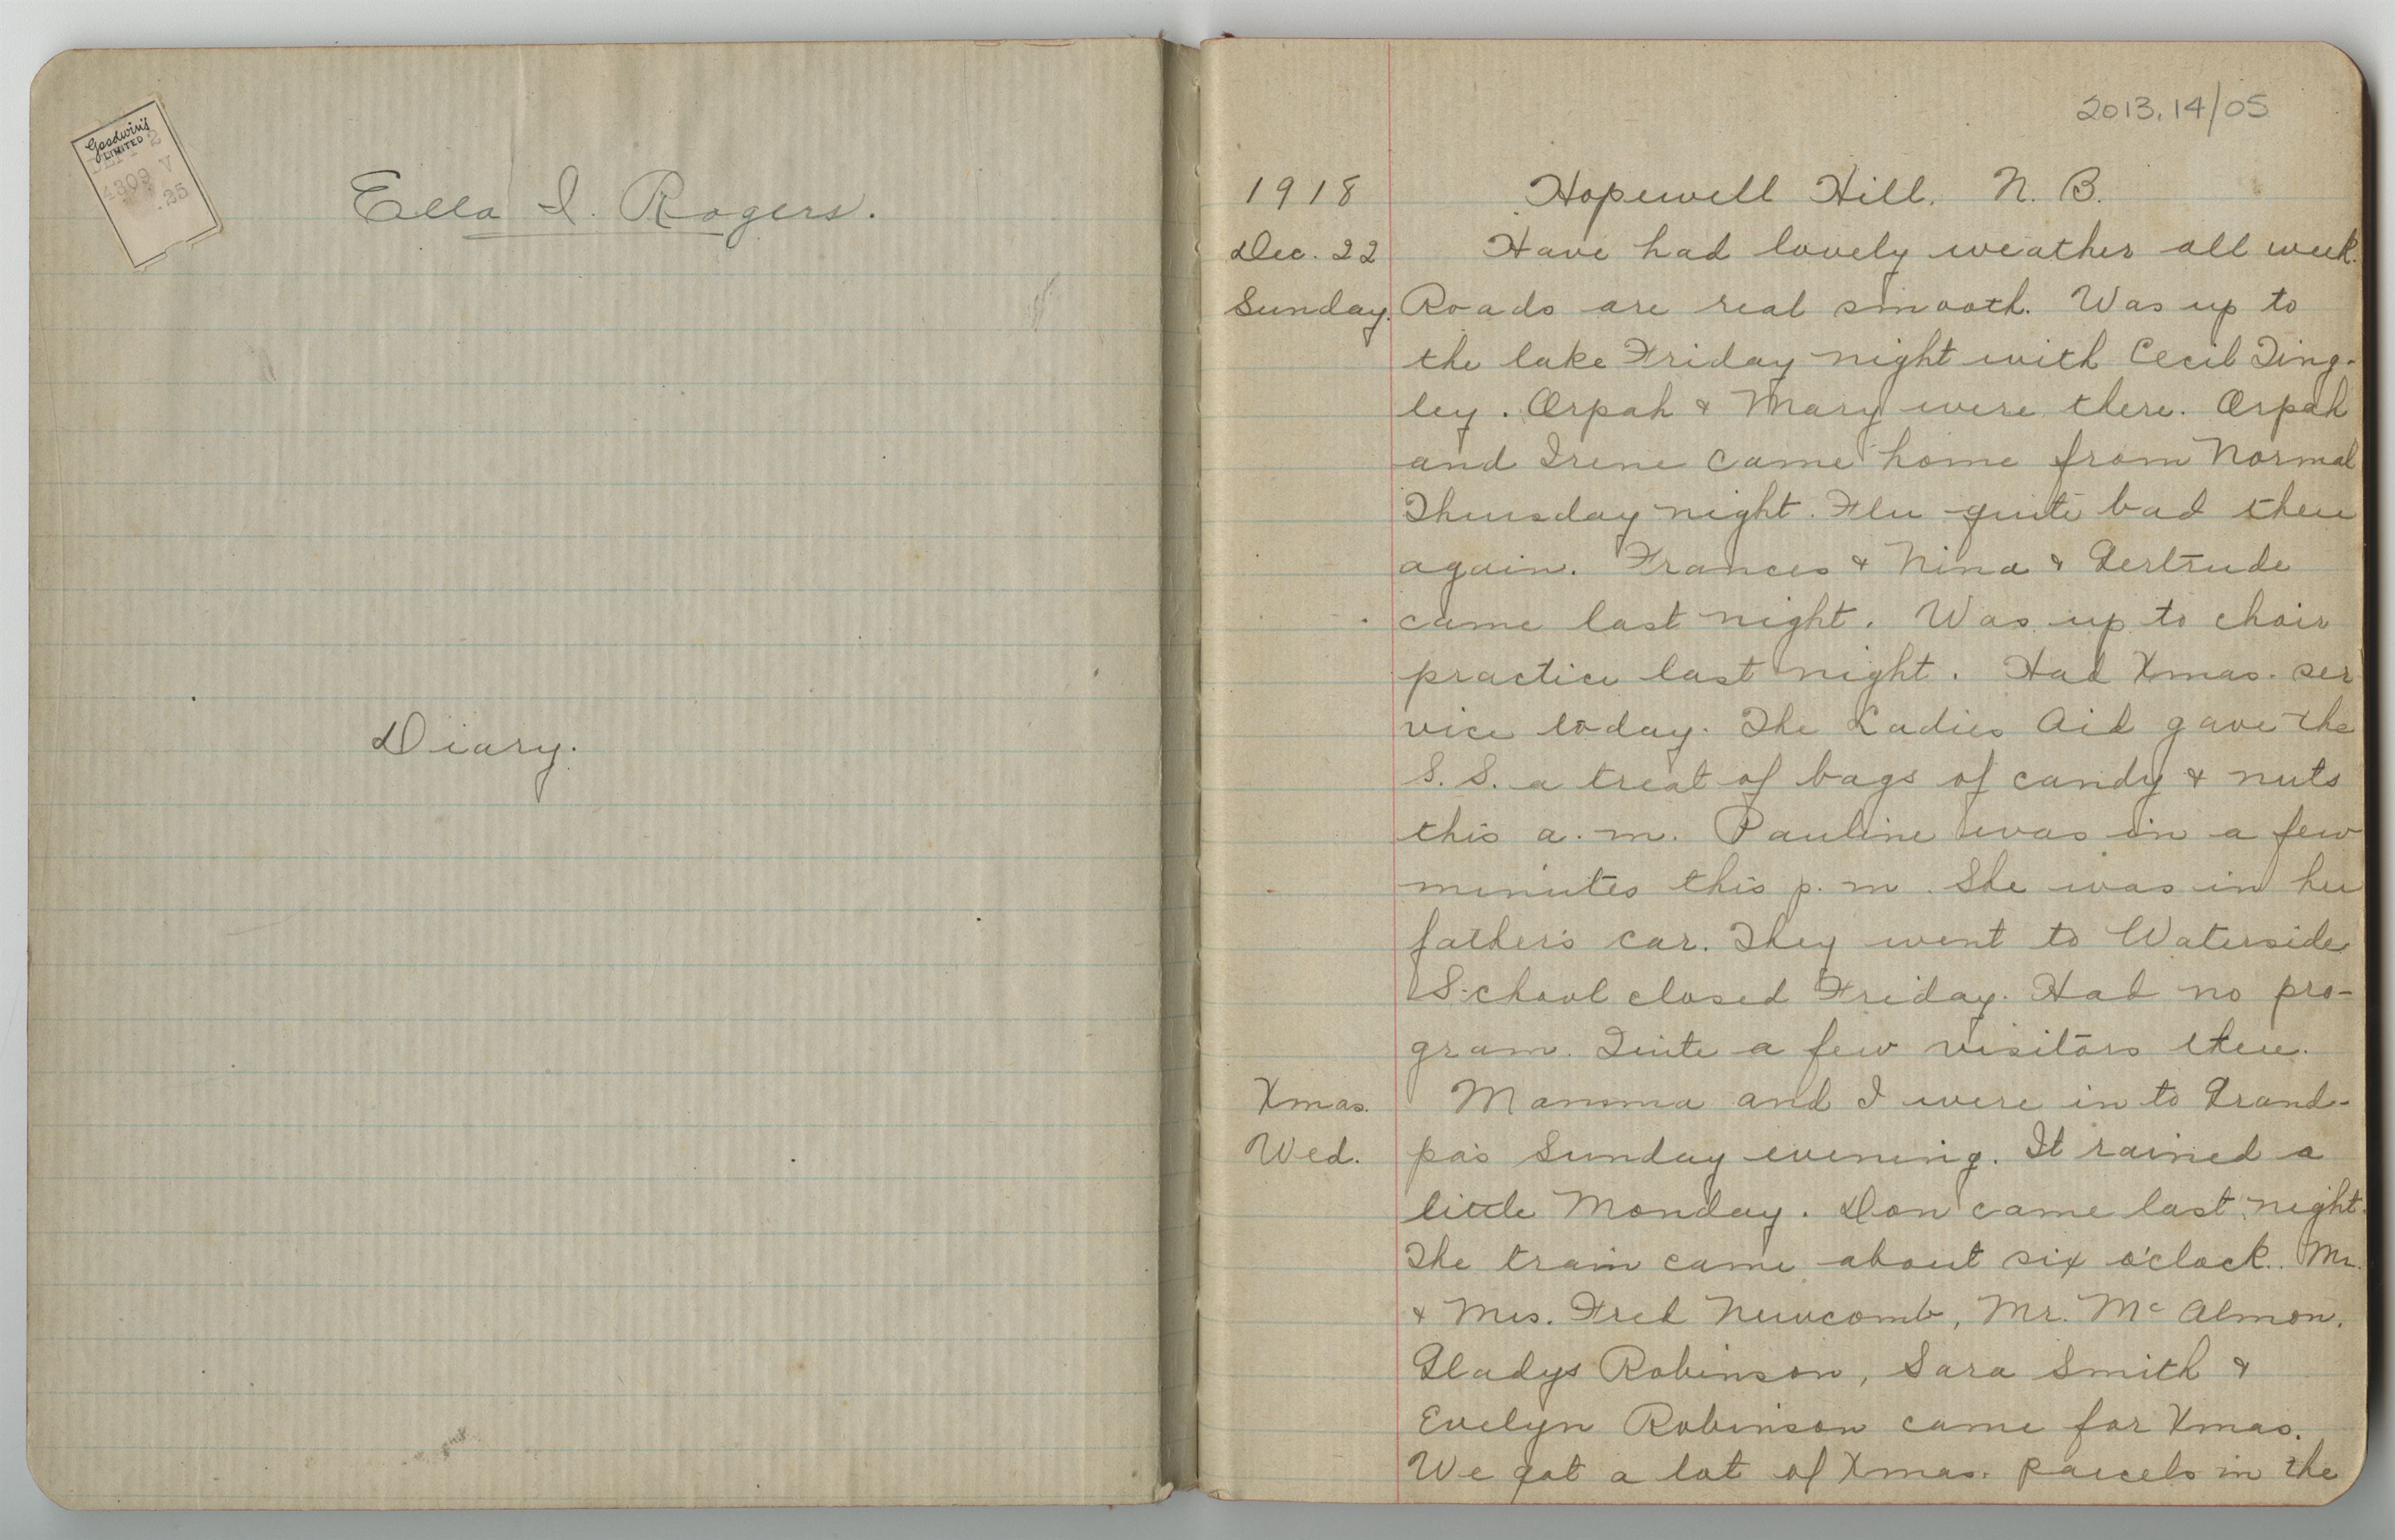 Goodwin's
LIMITED
4309 V
.25
Ella I. Rogers.
Diary.
2013.14/05
1918 Hopewell Hill. N. B.
Dec. 22 Have had lovely weather all week.
Sunday. Roads are real smooth. Was up to
the lake Friday night with Cecil Ting-
ley. Orpah & Mary were there. Orpah
and Irene came home from Normal
Thursday night. Flu quite bad there
again. Frances & Nina & Gertrude
came last night. Was up to choir
practice last night. Had Xmas. ser
vice today. The Ladies Aid gave the
S. S. a treat of bags of candy & nuts
this a. m. Pauline was in a few
minutes this p. m. She was in her
father's car. They went to Waterside
School closed Friday. Had no pro-
gram. Quite a few visitors there.
Xmas. Mamma and I were in to Grand-
Wed. pa's Sunday evening. It rained a
little Monday. Don came last night.
The train came about six o'clock. Mr.
& Mrs. Fred Newcomb, Mr. McAlmon,
Gladys Robinson, Sara Smith &
Evelyn Robinson came for Xmas.
We got a lot of Xmas. parcels in the